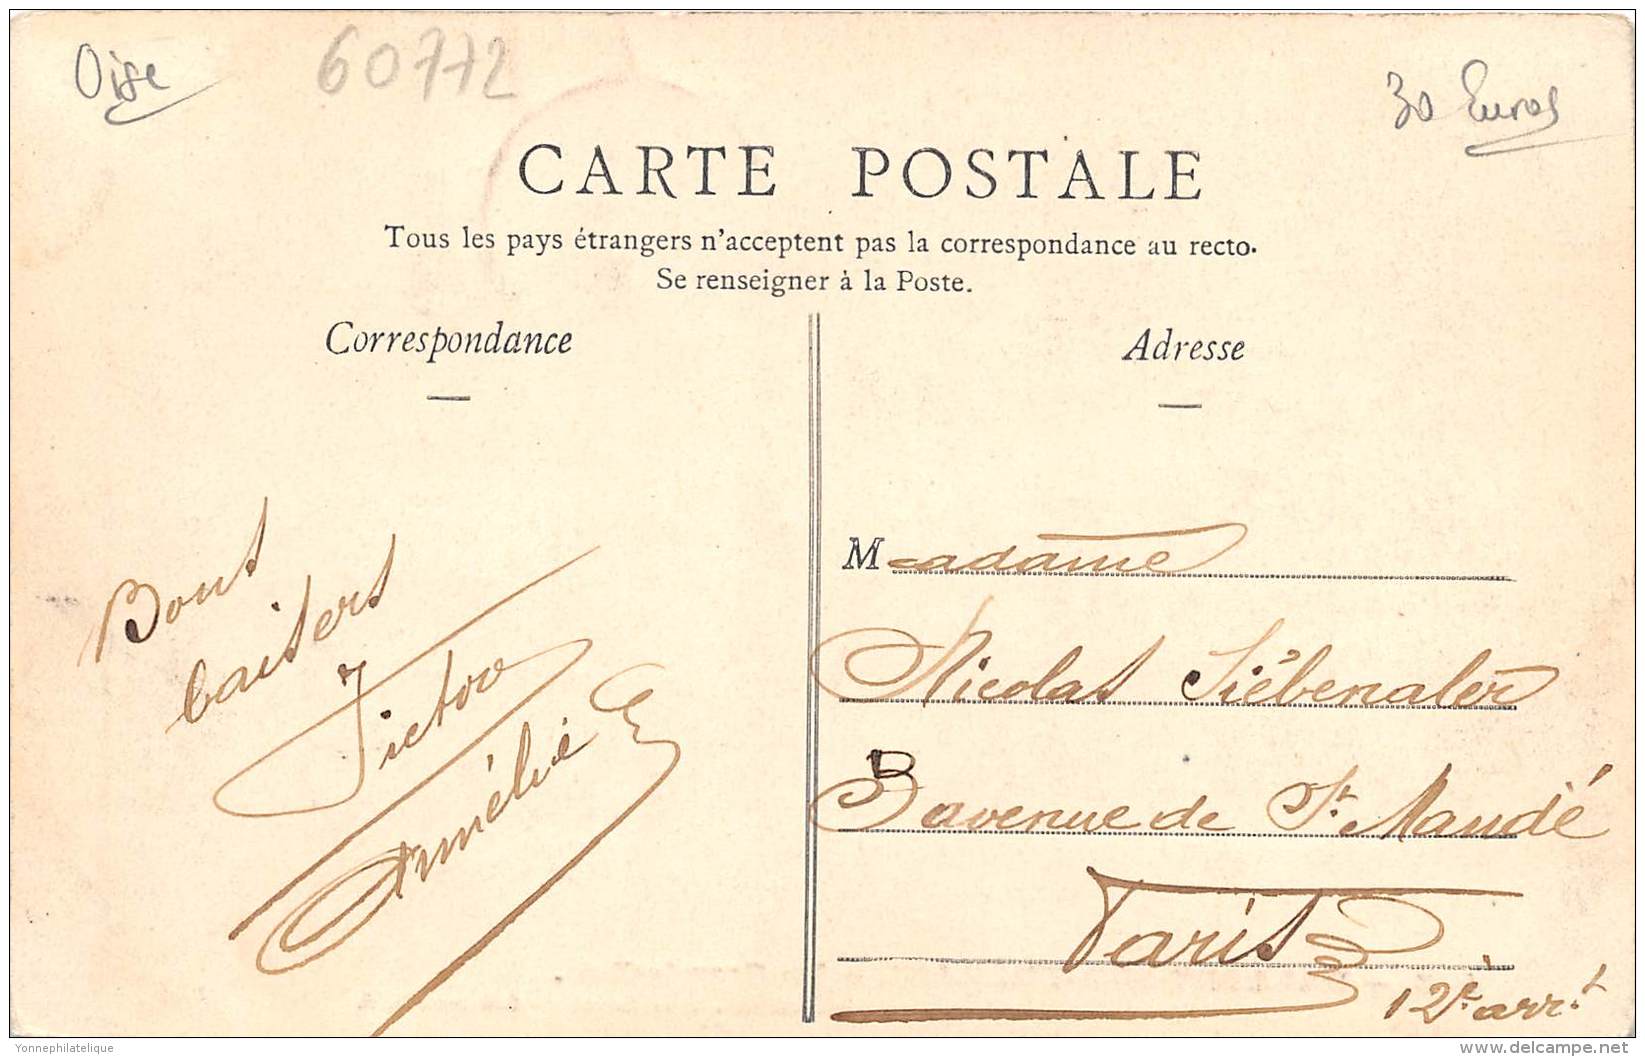 Oise
60772
30 Euros
CARTE POSTALE
Tous les pays étrangers n'acceptent pas la correspondance au recto.
Se renseigner à la Poste.
Correspondance
Bons
baisers
Victor
Amélie
Adresse
Madame
Nicolas Siébenaler
3 avenue de St. Mandé
Paris
12e. arrt.
Yonnephilatelique
delcampe.net